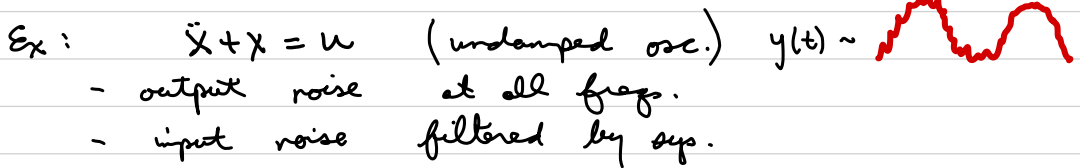 Ex : ẍ + x = u (undamped osc.) y(t) ~
- output noise at all freqs.
- input noise filtered by sys.